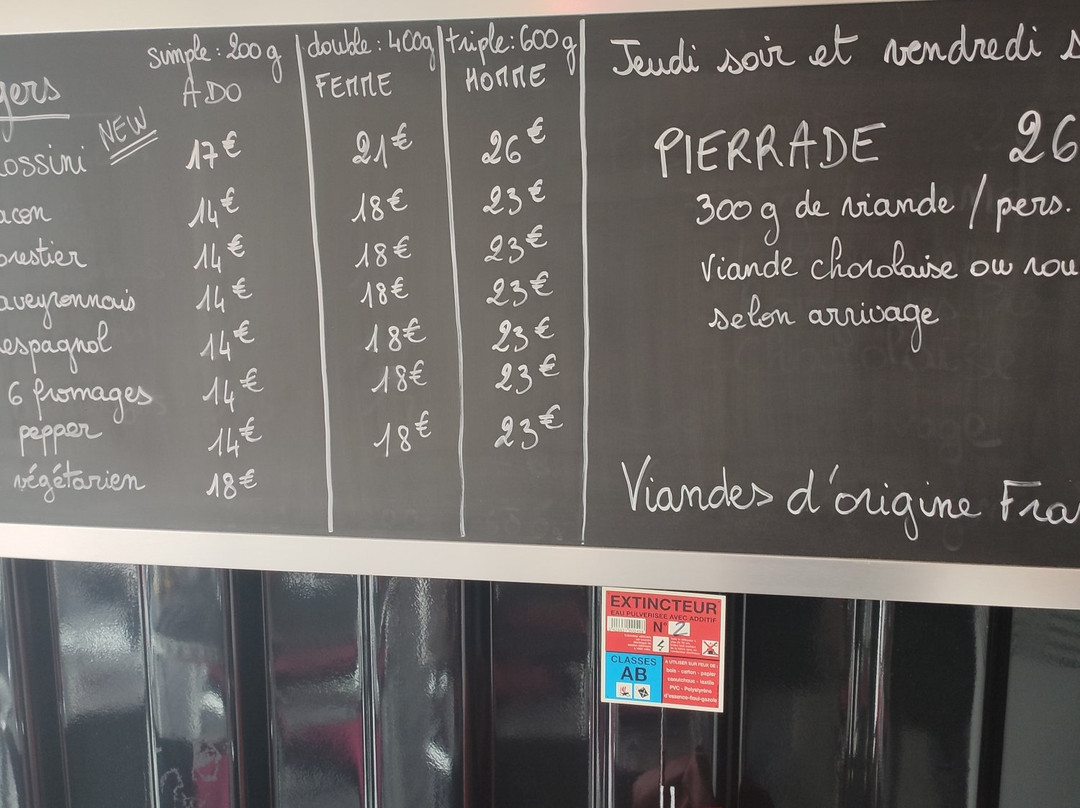 simple : 200 g double : 400g triple : 600 g
ADO FEMME HOMME
NEW
17€ 21€ 26€
14€ 18€ 23€
14€ 18€ 23€
aveyronnais 14€ 18€ 23€
espagnol 14€ 18€ 23€
6 fromages 14€ 18€ 23€
pepper 14€ 18€ 23€
végétarien 18€
Jeudi soir et vendredi s
PIERRADE 26
300 g de viande / pers.
Viande charolaise ou rou
selon arrivage
Viandes d'origine Fra
EXTINCTEUR
EAU PULVERISEE AVEC ADDITIF
N° 2
CLASSES
AB
A UTILISER SUR FEUX DE
bois - carton - papier
caoutchouc - textile
PVC - Polystyrène
d'essence-fioul-gazole